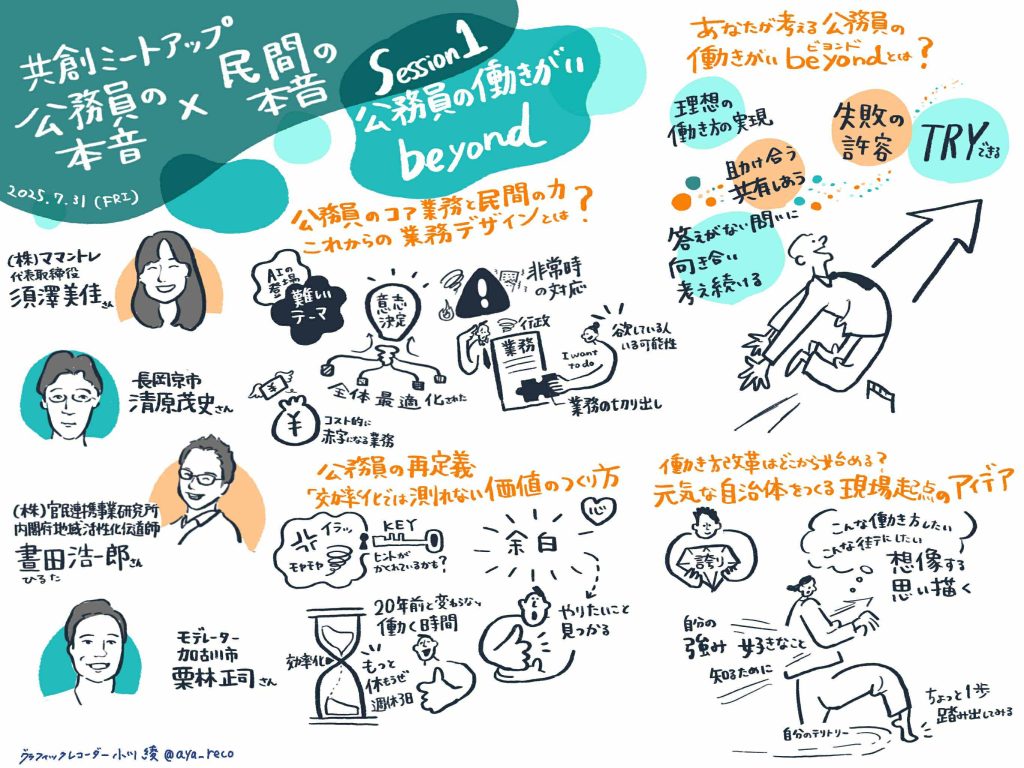 共創ミートアップ
公務員の本音
×
民間の本音
2025.7.31(FRI)
Session1
公務員の働きがい
beyond
(株)ママントレ
代表取締役
須澤美佳さん
長岡京市
清原茂史さん
(株)官民連携事業研究所
内閣府地域活性化伝道師
晝田浩一郎さん
ひるた
モデレーター
加古川市
栗林正司さん
グラフィックレコーダー 小川 綾 @aya_reco
公務員のコア業務と民間の力
これからの業務デザインとは?
AIの登場
難しい
テーマ
意志
決定
全体最適化された
¥
¥
コスト的に
赤字になる業務
!
非常時
の対応
行政
業務
I want
to do
欲している人
いる可能性
業務の切り出し
公務員の再定義
「効率化」では測れない価値のつくり方
イラッ
モヤモヤ
KEY
ヒントが
かくれているかも?
余白
心
やりたいこと
見つかる
効率化
20年前と変わらない
働く時間
もっと
休もうぜ
週休3日
あなたが考える公務員の
働きがいbeyondとは?
ビヨンド
理想の
働き方の実現
助け合う
共有しあう
失敗の
許容
TRYできる
答えがない問いに
向き合い
考え続ける
働き方改革はどこから始める?
元気な自治体をつくる現場起点のアイデア
誇り
こんな働き方したい
こんな街にしたい
想像する
思い描く
自分の
強み 好きなこと
知るために
自分のテリトリー
ちょっと1歩
踏み出してみる